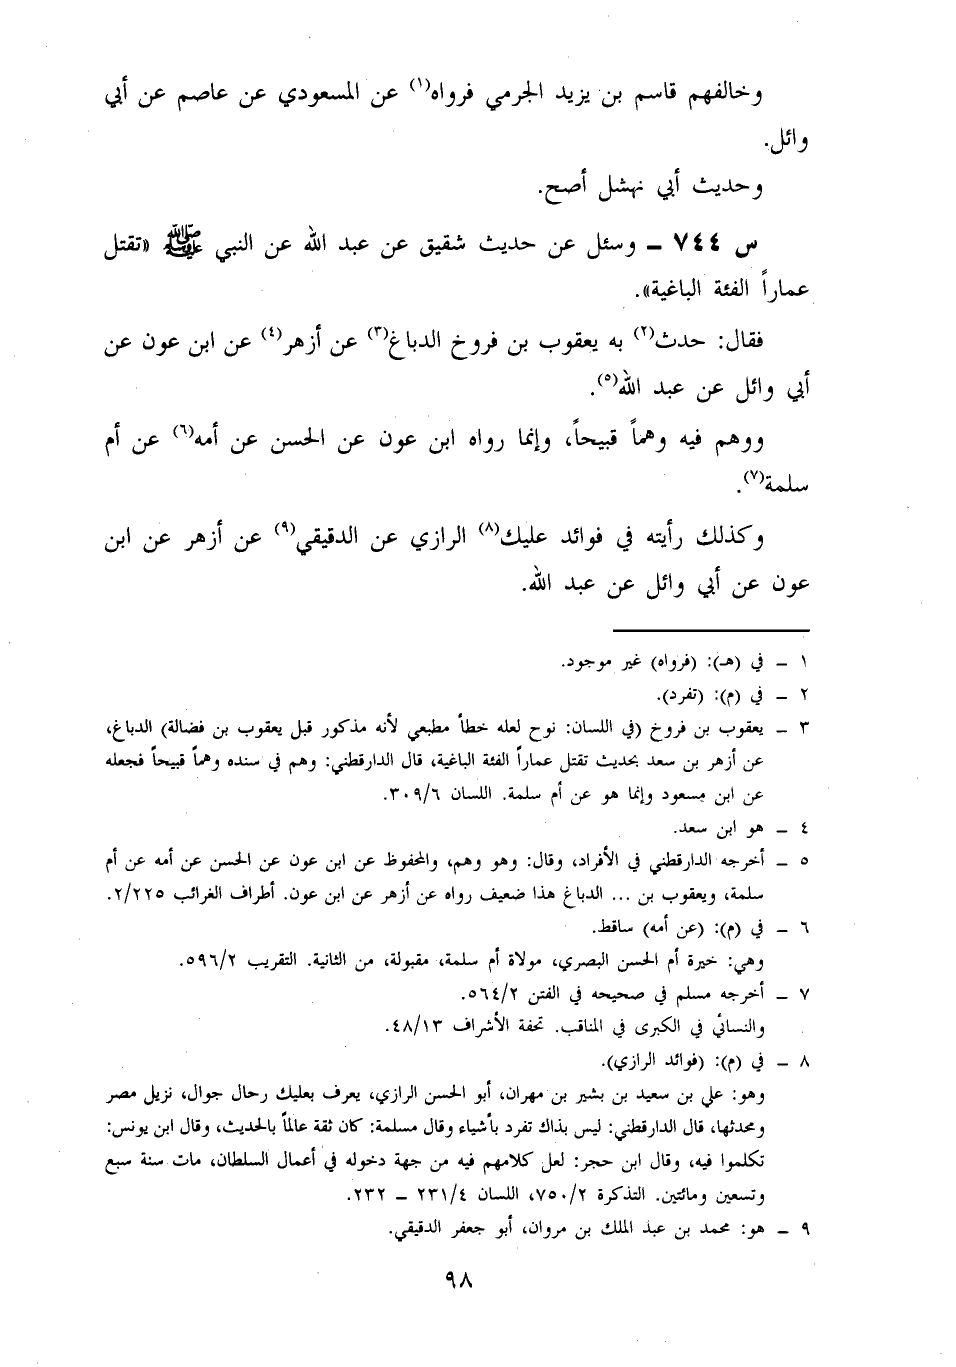 وخالفهم قاسم بن يزيد الجرمي فرواه(١) عن المسعودي عن عاصم عن أبي
وائل.
وحديث أبي نهشل أصح.
س ٧٤٤ ـ وسئل عن حديث شقيق عن عبد الله عن النبي ﷺ «تقتل
عماراً الفئة الباغية».
فقال: حدث(٢) به يعقوب بن فروخ الدباغ(٣) عن أزهر(٤) عن ابن عون عن
أبي وائل عن عبد الله(٥).
ووهم فيه وهماً قبيحاً، وإنما رواه ابن عون عن الحسن عن أمه(٦) عن أم
سلمة(٧).
وكذلك رأيته في فوائد عليك(٨) الرازي عن الدقيقي(٩) عن أزهر عن ابن
عون عن أبي وائل عن عبد الله.
١ ـ في (هـ): (فرواه) غير موجود.
٢ ـ في (م): (تفرد).
٣ ـ يعقوب بن فروخ (في اللسان: نوح لعله خطأ مطبعي لأنه مذكور قبل يعقوب بن فضالة) الدباغ،
عن أزهر بن سعد بحديث تقتل عماراً الفئة الباغية، قال الدارقطني: وهم في سنده وهماً قبيحاً فجعله
عن ابن مسعود وإنما هو عن أم سلمة. اللسان ٣٠٩/٦.
٤ ـ هو ابن سعد.
٥ ـ أخرجه الدارقطني في الأفراد، وقال: وهو وهم، والمحفوظ عن ابن عون عن الحسن عن أمه عن أم
سلمة، ويعقوب بن ... الدباغ هذا ضعيف رواه عن أزهر عن ابن عون. أطراف الغرائب ٢/٢٢٥.
٦ ـ في (م): (عن أمه) ساقط.
وهي: خيرة أم الحسن البصري، مولاة أم سلمة، مقبولة، من الثانية. التقريب ٥٩٦/٢.
٧ ـ أخرجه مسلم في صحيحه في الفتن ٥٦٤/٢.
والنسائي في الكبرى في المناقب. تحفة الأشراف ٤٨/١٣.
٨ ـ في (م): (فوائد الرازي).
وهو: علي بن سعيد بن بشير بن مهران، أبو الحسن الرازي، يعرف بعليك رحال جوال، نزيل مصر
ومحدثها، قال الدارقطني: ليس بذاك تفرد بأشياء وقال مسلمة: كان ثقة عالماً بالحديث، وقال ابن يونس:
تكلموا فيه، وقال ابن حجر: لعل كلامهم فيه من جهة دخوله في أعمال السلطان، مات سنة سبع
وتسعين ومائتين. التذكرة ٧٥٠/٢، اللسان ٢٣١/٤ ـ ٢٣٢.
٩ ـ هو: محمد بن عبد الملك بن مروان، أبو جعفر الدقيقي.
٩٨